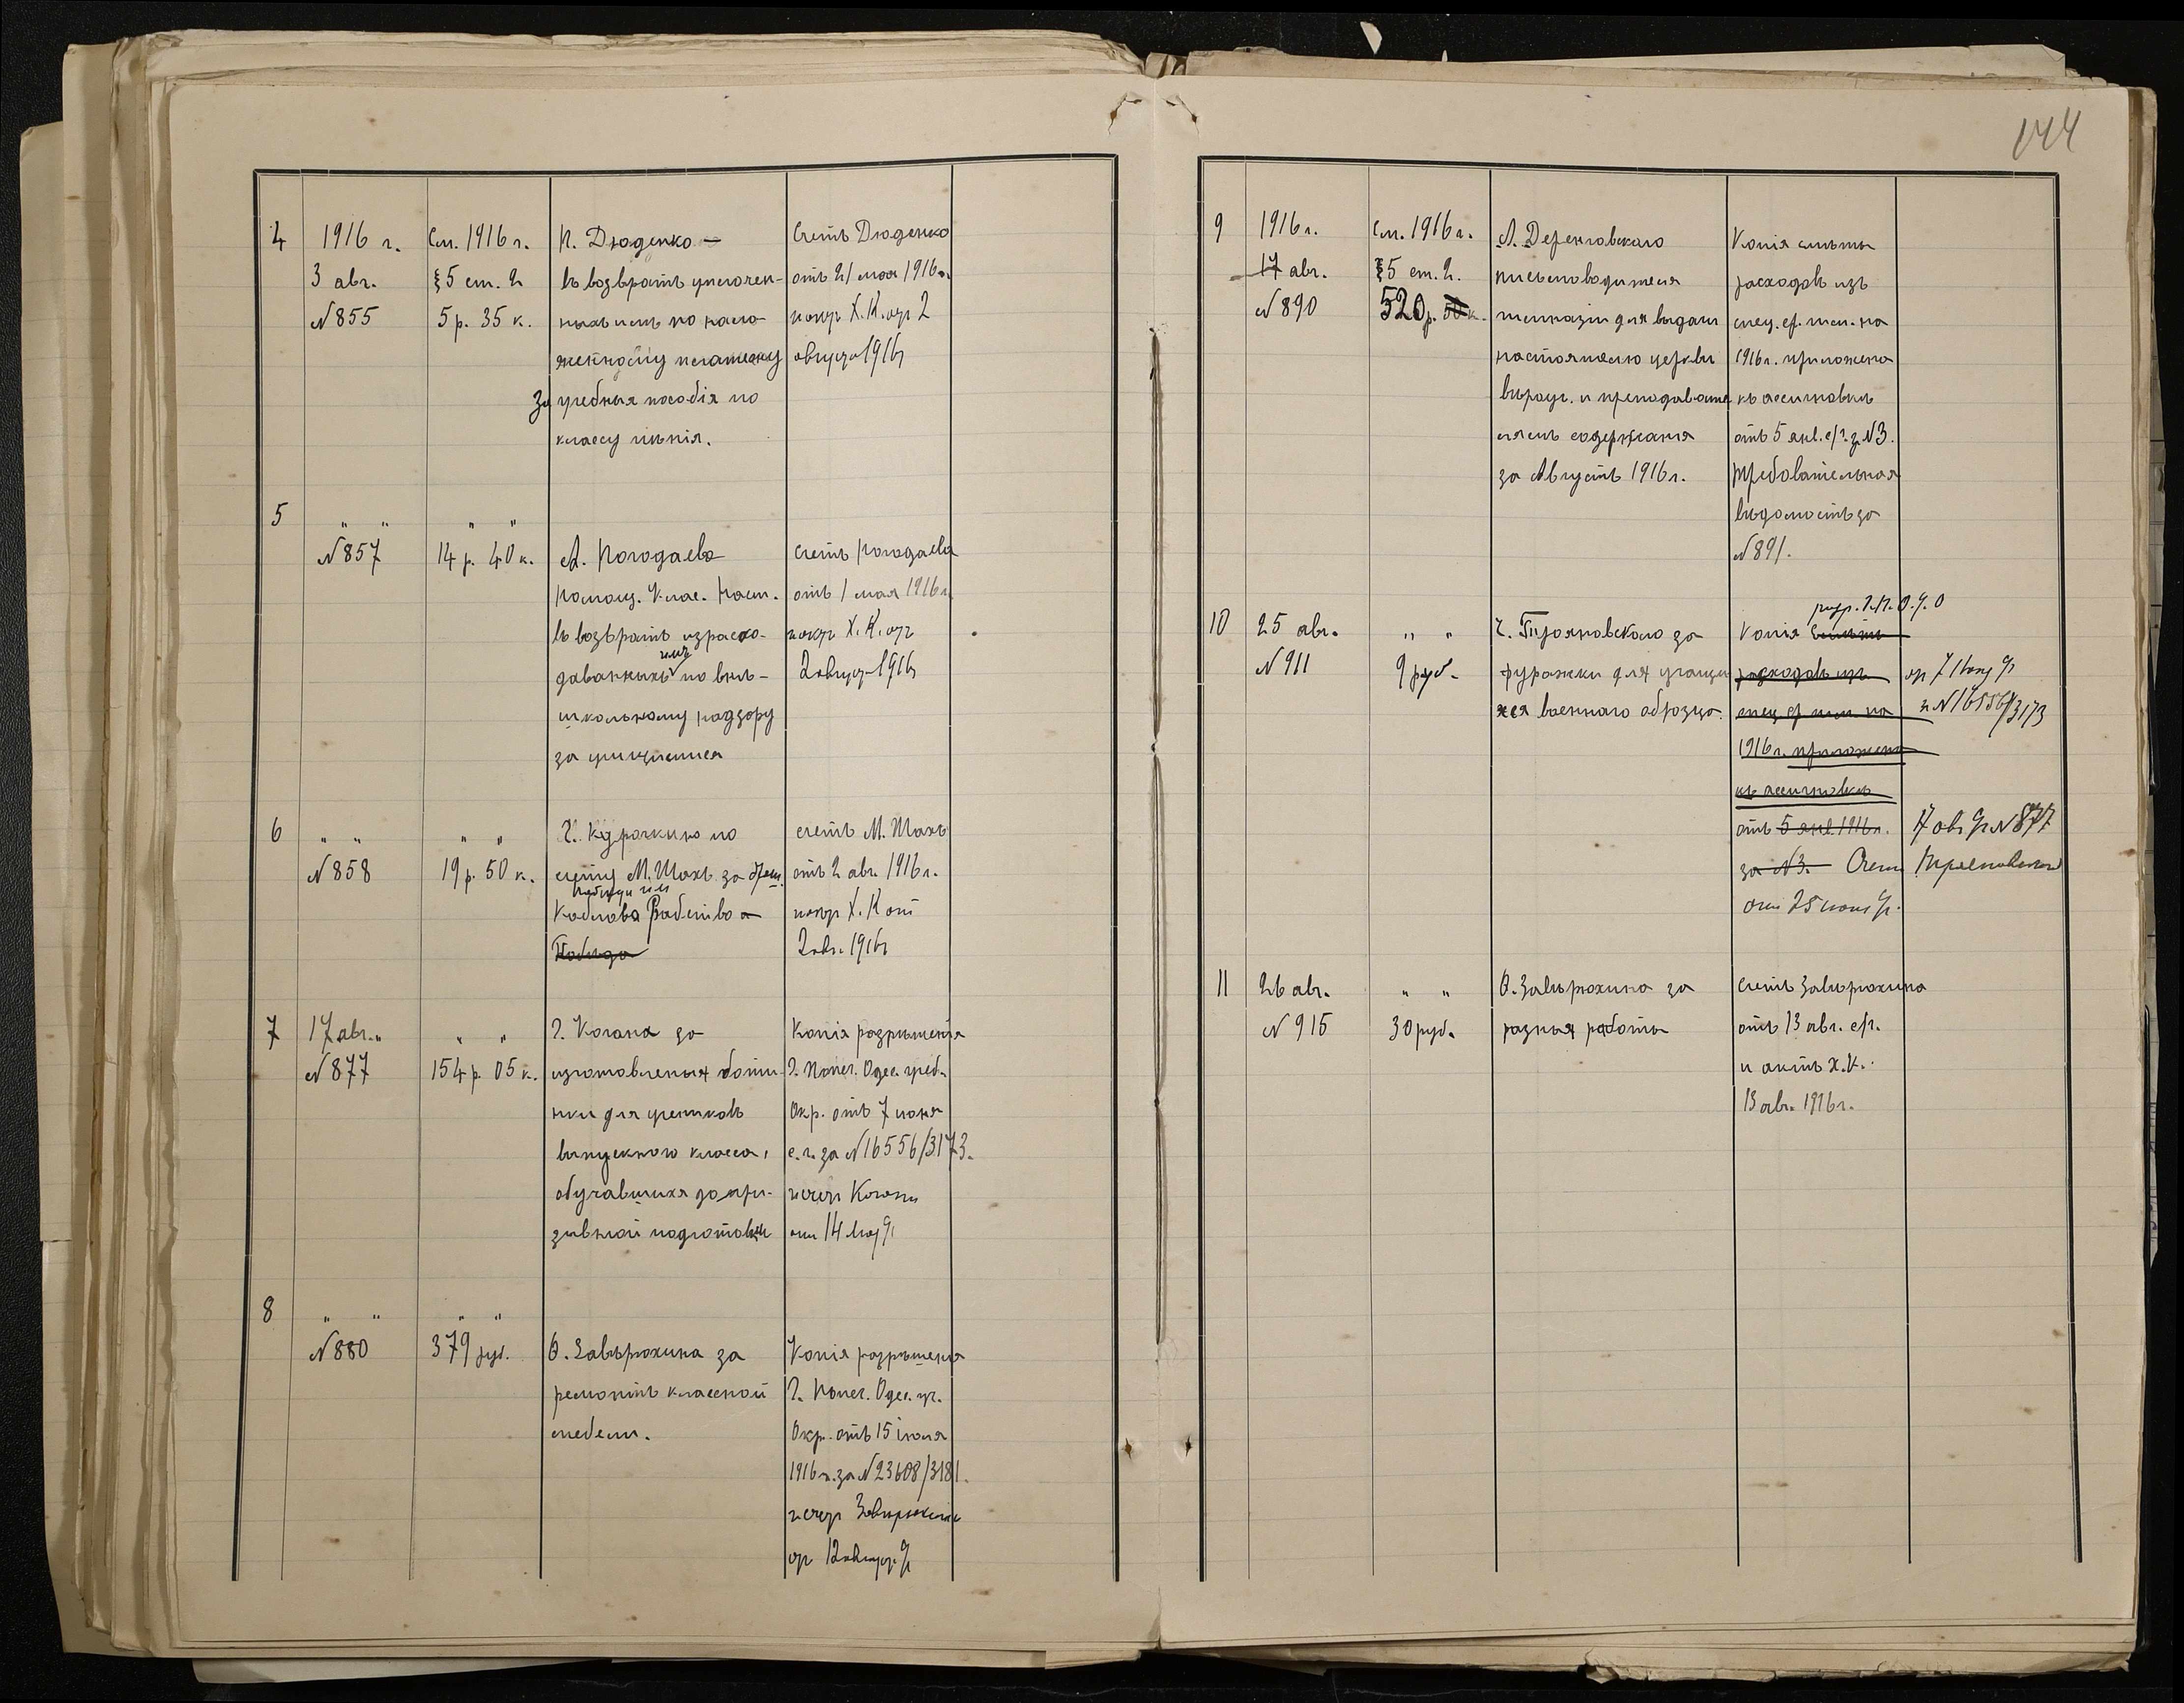 144
4
1916 г.
3 авг.
№855
См. 1916 г.
§5 ст. 2
5 р. 35 к.
П. Дюденко —
въ возвратъ уплочен-
ныхъ имъ по нало-
женному платежу
за учебныя пособія по
классу пѣнія.
Счетъ Дюденко
отъ 21 мая 1916 г.
Х. К. от 2
августа 1916 г
5
" "
№857
" "
14 р. 40 к.
А. Погодаева
Помощ. Клас. Наст.
въ возвратъ израсхо-
дованныхъ имъ по внѣ-
школьному надзору
за учащимися
Счетъ Погодаева
отъ 1 мая 1916 г.
Х. К. от
2 августа 1916 г
6
" "
№858
" "
19 р. 50 к.
Г. Курочкину по
счету М. Шахъ за
Победа
счетъ М. Шахъ
отъ 2 авг. 1916 г.
Х. К от
2 авг. 1916 г
7
17 авг.
№877
" "
154 р. 05 к.
Г. Когана за
изготовленныя ботин-
ки для учениковъ
выпускного класса,
обучавшихся допри-
зывной подготовки
Копія разрѣшенія
Г. Попеч. Одес. учеб.
Окр. отъ 7 іюня
с. г. за №16556/3173.
и счет Когана
от 14 Мая
8
" "
№880
" "
379 руб.
Ѳ. Завѣрюхина за
ремонтъ классной
мебели.
Копія разрѣшенія
Г. Попеч. Одес. уч.
Окр. отъ 15 іюля
1916 г. за №23608/3181.
и счет Завирюхина
от 12 август.
9
1916 г.
17 авг.
№890
См. 1916 г.
§5 ст. 2.
520 р. 50 к.
А. Деренговскаго
письмоводителя
гимназіи для выдачи
настоятелю церкви
вѣроуч. и преподавате
лямъ содержанія
за Августъ 1916 г.
Копія смѣты
расходовъ изъ
спец. ср. гим. на
1916 г. приложена
къ ассигновкѣ
отъ 5 янв. с/г. з. №3.
Требовательная
вѣдомость за
№891.
10
25 авг.
№911
" "
9 руб.
Г. Трояновскаго за
фуражки для учащи
хся военнаго образца.
разр. Г. П. О. У. О
Копія смѣты
расходовъ изъ
спец. ср. гим. на
1916 г. приложена
къ ассигновкѣ
отъ 5 янв. 1916 г.
за №3. Счет
от 25 июня
от 7 Июня
№16556/3173
17 авг №877
11
26 авг.
№915
" "
30 руб.
Ѳ. Завѣрюхина за
разныя работы
Счетъ Завѣрюхина
отъ 13 авг. с/г.
и актъ х. к.
13 авг. 1916 г.